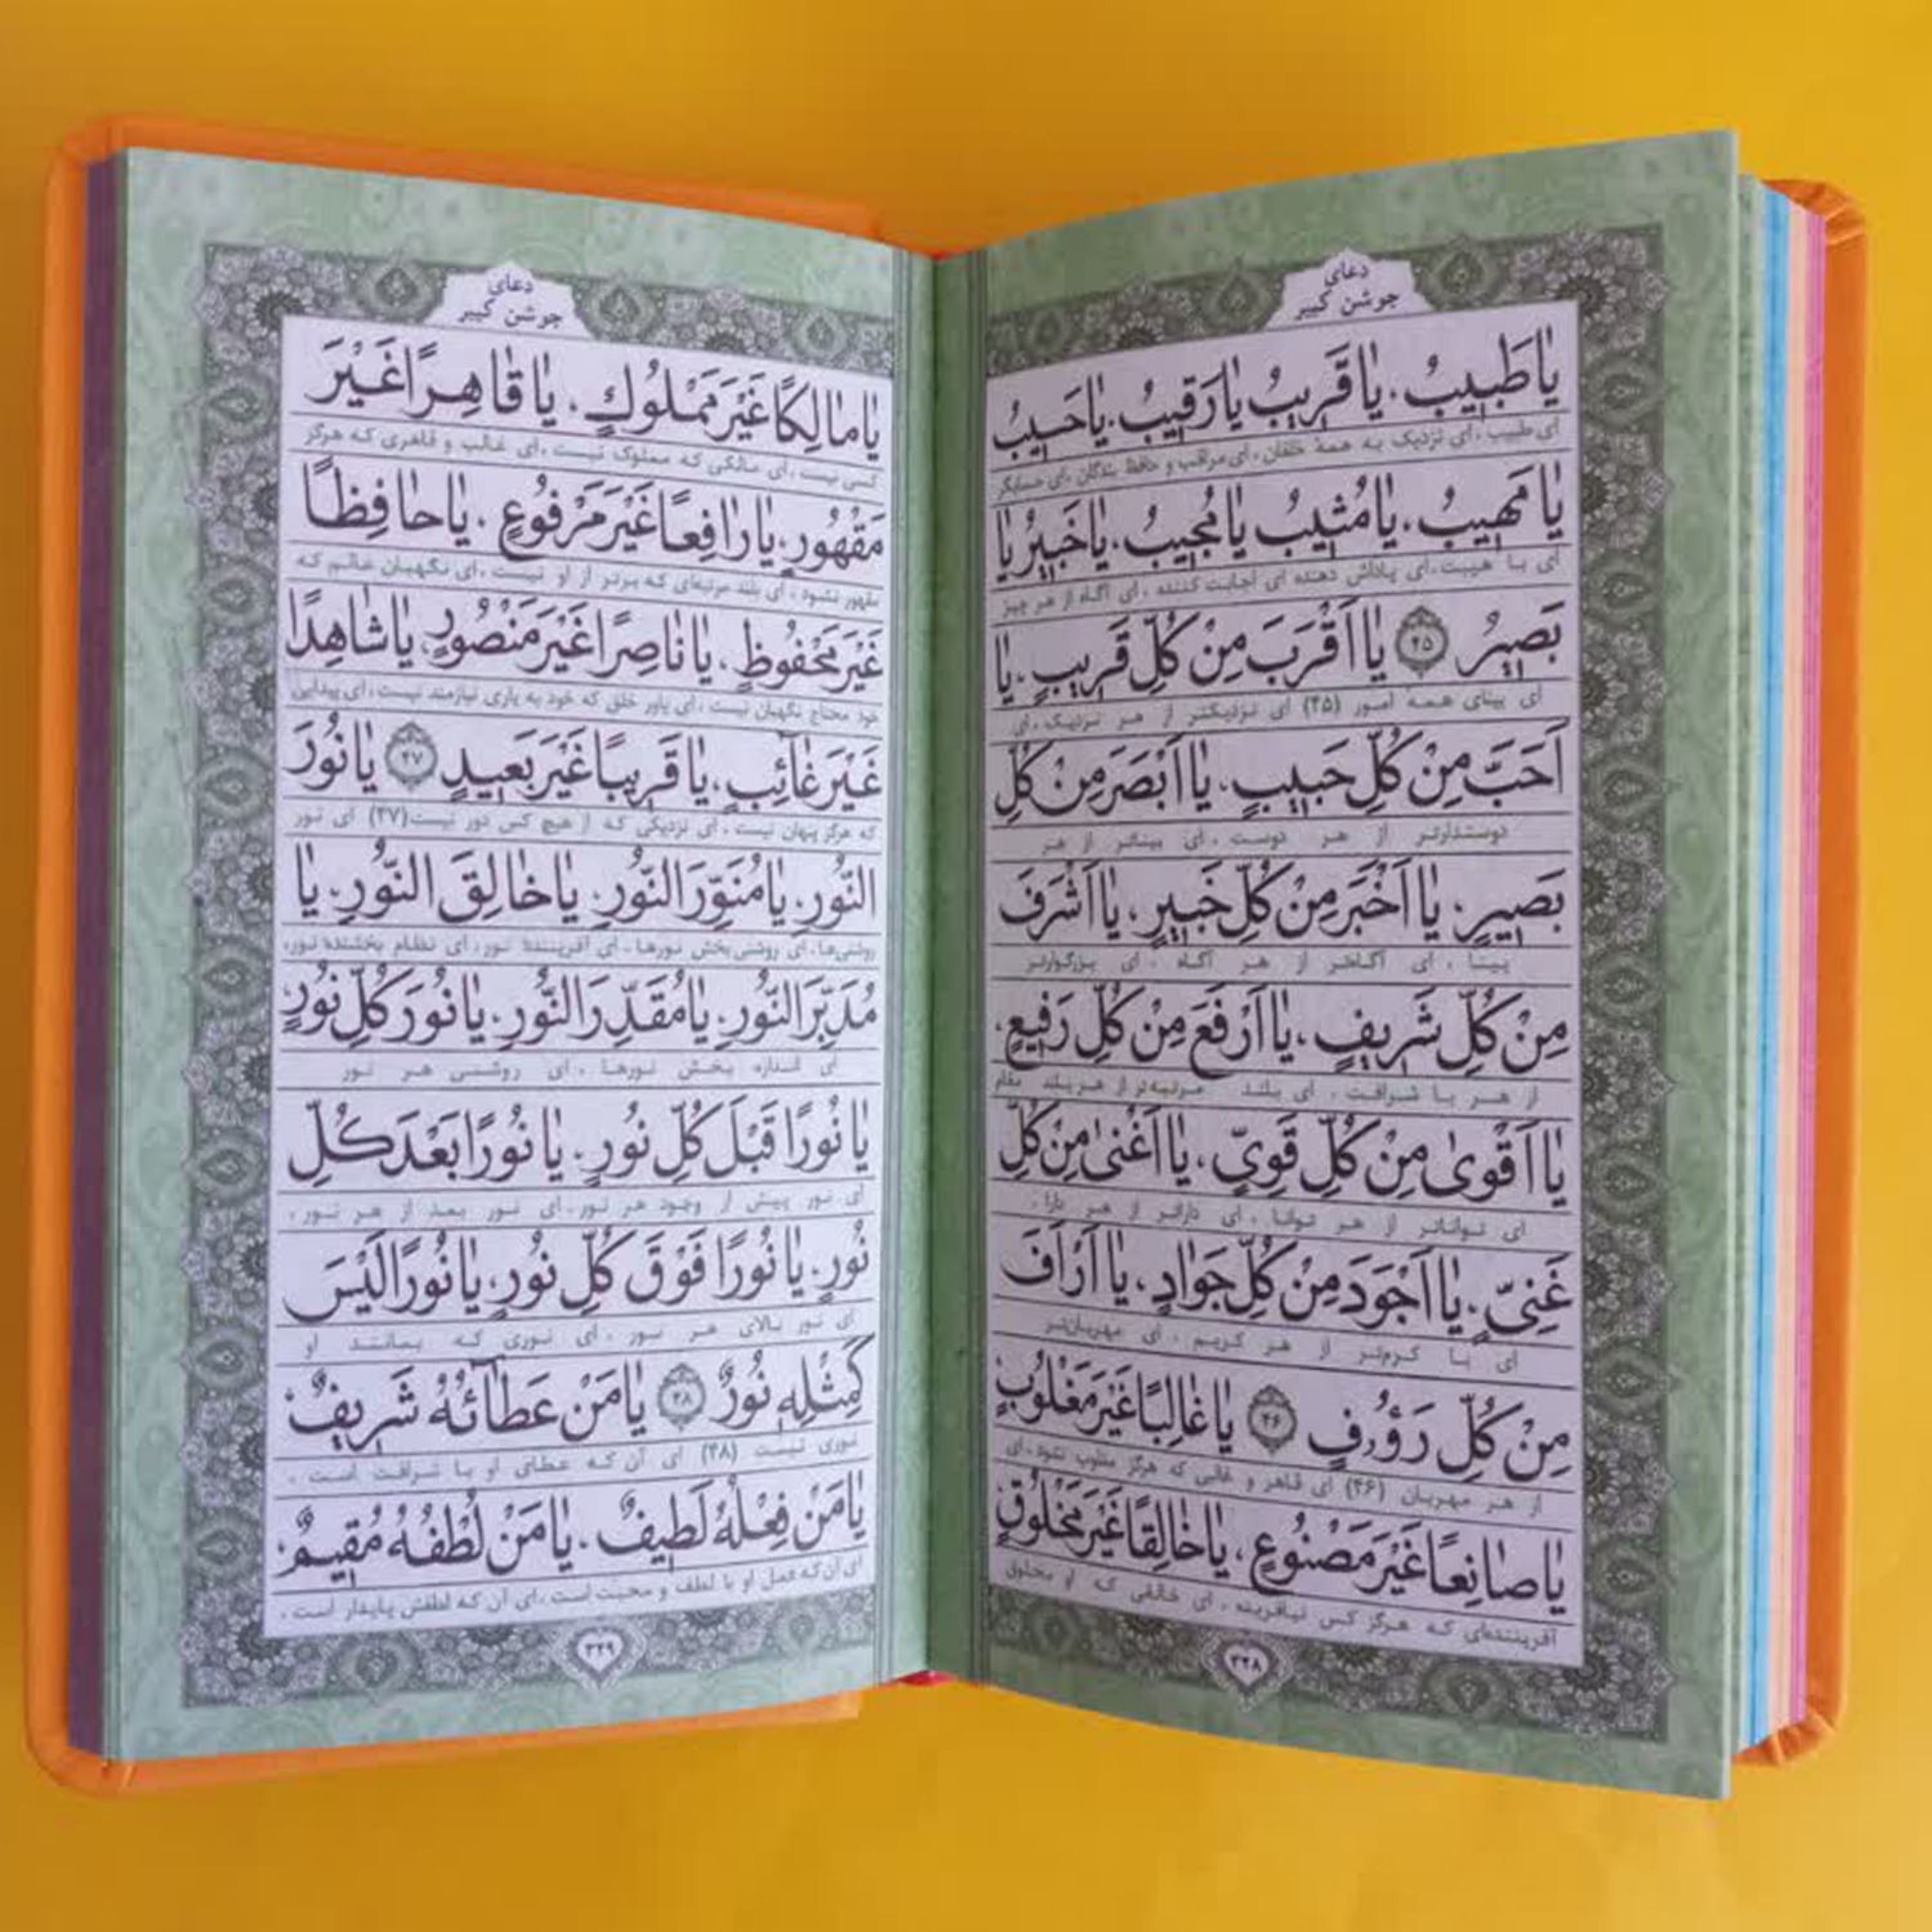 دعای
جوشن کبیر
یٰا طَبیبُ، یٰا قَریبُ یٰا رَقیبُ، یٰا حَسیبُ
ای طبیب، ای نزدیک به همهٔ خلقان، ای مراقب و حافظ بندگان، ای حسابگر
یٰا مَهیبُ، یٰا مُثیبُ یٰا مُجیبُ، یٰا خَبیرُ یٰا
ای با هیبت، ای پاداش دهنده ای اجابت کننده، ای آگاه از هر چیز
بَصیرُ ۴۵ یٰا اَقْرَبَ مِنْ كُلِّ قَریبٍ، یٰا
ای بینای همه امور (۴۵) ای نزدیکتر از هر نزدیک، ای
اَحَبَّ مِنْ كُلِّ حَبیبٍ، یٰا اَبْصَرَ مِنْ كُلِّ
دوستدارتر از هر دوست، ای بیناتر از هر
بَصیرٍ، یٰا اَخْبَرَ مِنْ كُلِّ خَبیرٍ، یٰا اَشْرَفَ
بینا، ای آگاهتر از هر آگاه، ای بزرگوارتر
مِنْ كُلِّ شَریفٍ، یٰا اَرْفَعَ مِنْ كُلِّ رَفیعٍ،
از هر با شرافت، ای بلند مرتبه‌تر از هر بلند مقام
یٰا اَقْویٰ مِنْ كُلِّ قَوِیٍّ، یٰا اَغْنیٰ مِنْ كُلِّ
ای تواناتر از هر توانا، ای داراتر از هر دارا،
غَنِیٍّ، یٰا اَجْوَدَ مِنْ كُلِّ جَوٰادٍ، یٰا اَرْاَفَ
ای با کرم‌تر از هر کریم، ای مهربان‌تر
مِنْ كُلِّ رَؤُفٍ ۴۶ یٰا غٰالِبًا غَیْرَ مَغْلُوبٍ
از هر مهربان (۴۶) ای قاهر و غالبی که هرگز مغلوب نشود، ای
یٰا صٰانِعًا غَیْرَ مَصْنُوعٍ، یٰا خٰالِقًا غَیْرَ مَخْلُوقٍ
آفریننده‌ای که هرگز کس نیافریده، ای خالقی که او مخلوق
۳۲۸
دعای
جوشن کبیر
یٰا مٰالِكًا غَیْرَ مَمْلُوكٍ، یٰا قٰاهِرًا غَیْرَ
کسی نیست، ای مالکی که مملوک نیست، ای غالب و قاهری که هرگز
مَقْهُورٍ، یٰا رٰافِعًا غَیْرَ مَرْفُوعٍ، یٰا حٰافِظًا
مقهور نشود، ای بلند مرتبه‌ای که برتر از او نیست، ای نگهبان عالم که
غَیْرَ مَحْفُوظٍ، یٰا نٰاصِرًا غَیْرَ مَنْصُورٍ، یٰا شٰاهِدًا
خود محتاج نگهبان نیست، ای یاور خلق که خود به یاری نیازمند نیست، ای پیدایی
غَیْرَ غٰآئِبٍ، یٰا قَریبًا غَیْرَ بَعیدٍ ۴۷ یٰا نُورَ
که هرگز پنهان نیست، ای نزدیکی که از هیچ کس دور نیست (۴۷) ای نور
النُّورِ، یٰا مُنَوِّرَ النُّورِ، یٰا خٰالِقَ النُّورِ، یٰا
روشنی‌ها، ای روشنی‌بخش نورها، ای آفرینندهٔ نور، ای نظام بخشندهٔ نور،
مُدَبِّرَ النُّورِ، یٰا مُقَدِّرَ النُّورِ، یٰا نُورَ كُلِّ نُورٍ
ای اندازه بخش نورها، ای روشنی هر نور
یٰا نُورًا قَبْلَ كُلِّ نُورٍ، یٰا نُورًا بَعْدَ كُلِّ
ای نور پیش از وجود هر نور، ای نور بعد از هر نور،
نُورٍ، یٰا نُورًا فَوْقَ كُلِّ نُورٍ، یٰا نُورًا لَیْسَ
ای نور بالای هر نور، ای نوری که بمانند او
كَمِثْلِهِ نُورٌ ۴۸ یٰا مَنْ عَطٰآئُهُ شَریفٌ،
نوری نیست (۴۸) ای آن که عطای او با شرافت است،
یٰا مَنْ فِعْلُهُ لَطیفٌ، یٰا مَنْ لُطْفُهُ مُقیمٌ،
ای آن که فعل او با لطف و محبت است، ای آن که لطفش پایدار است،
۳۲۹